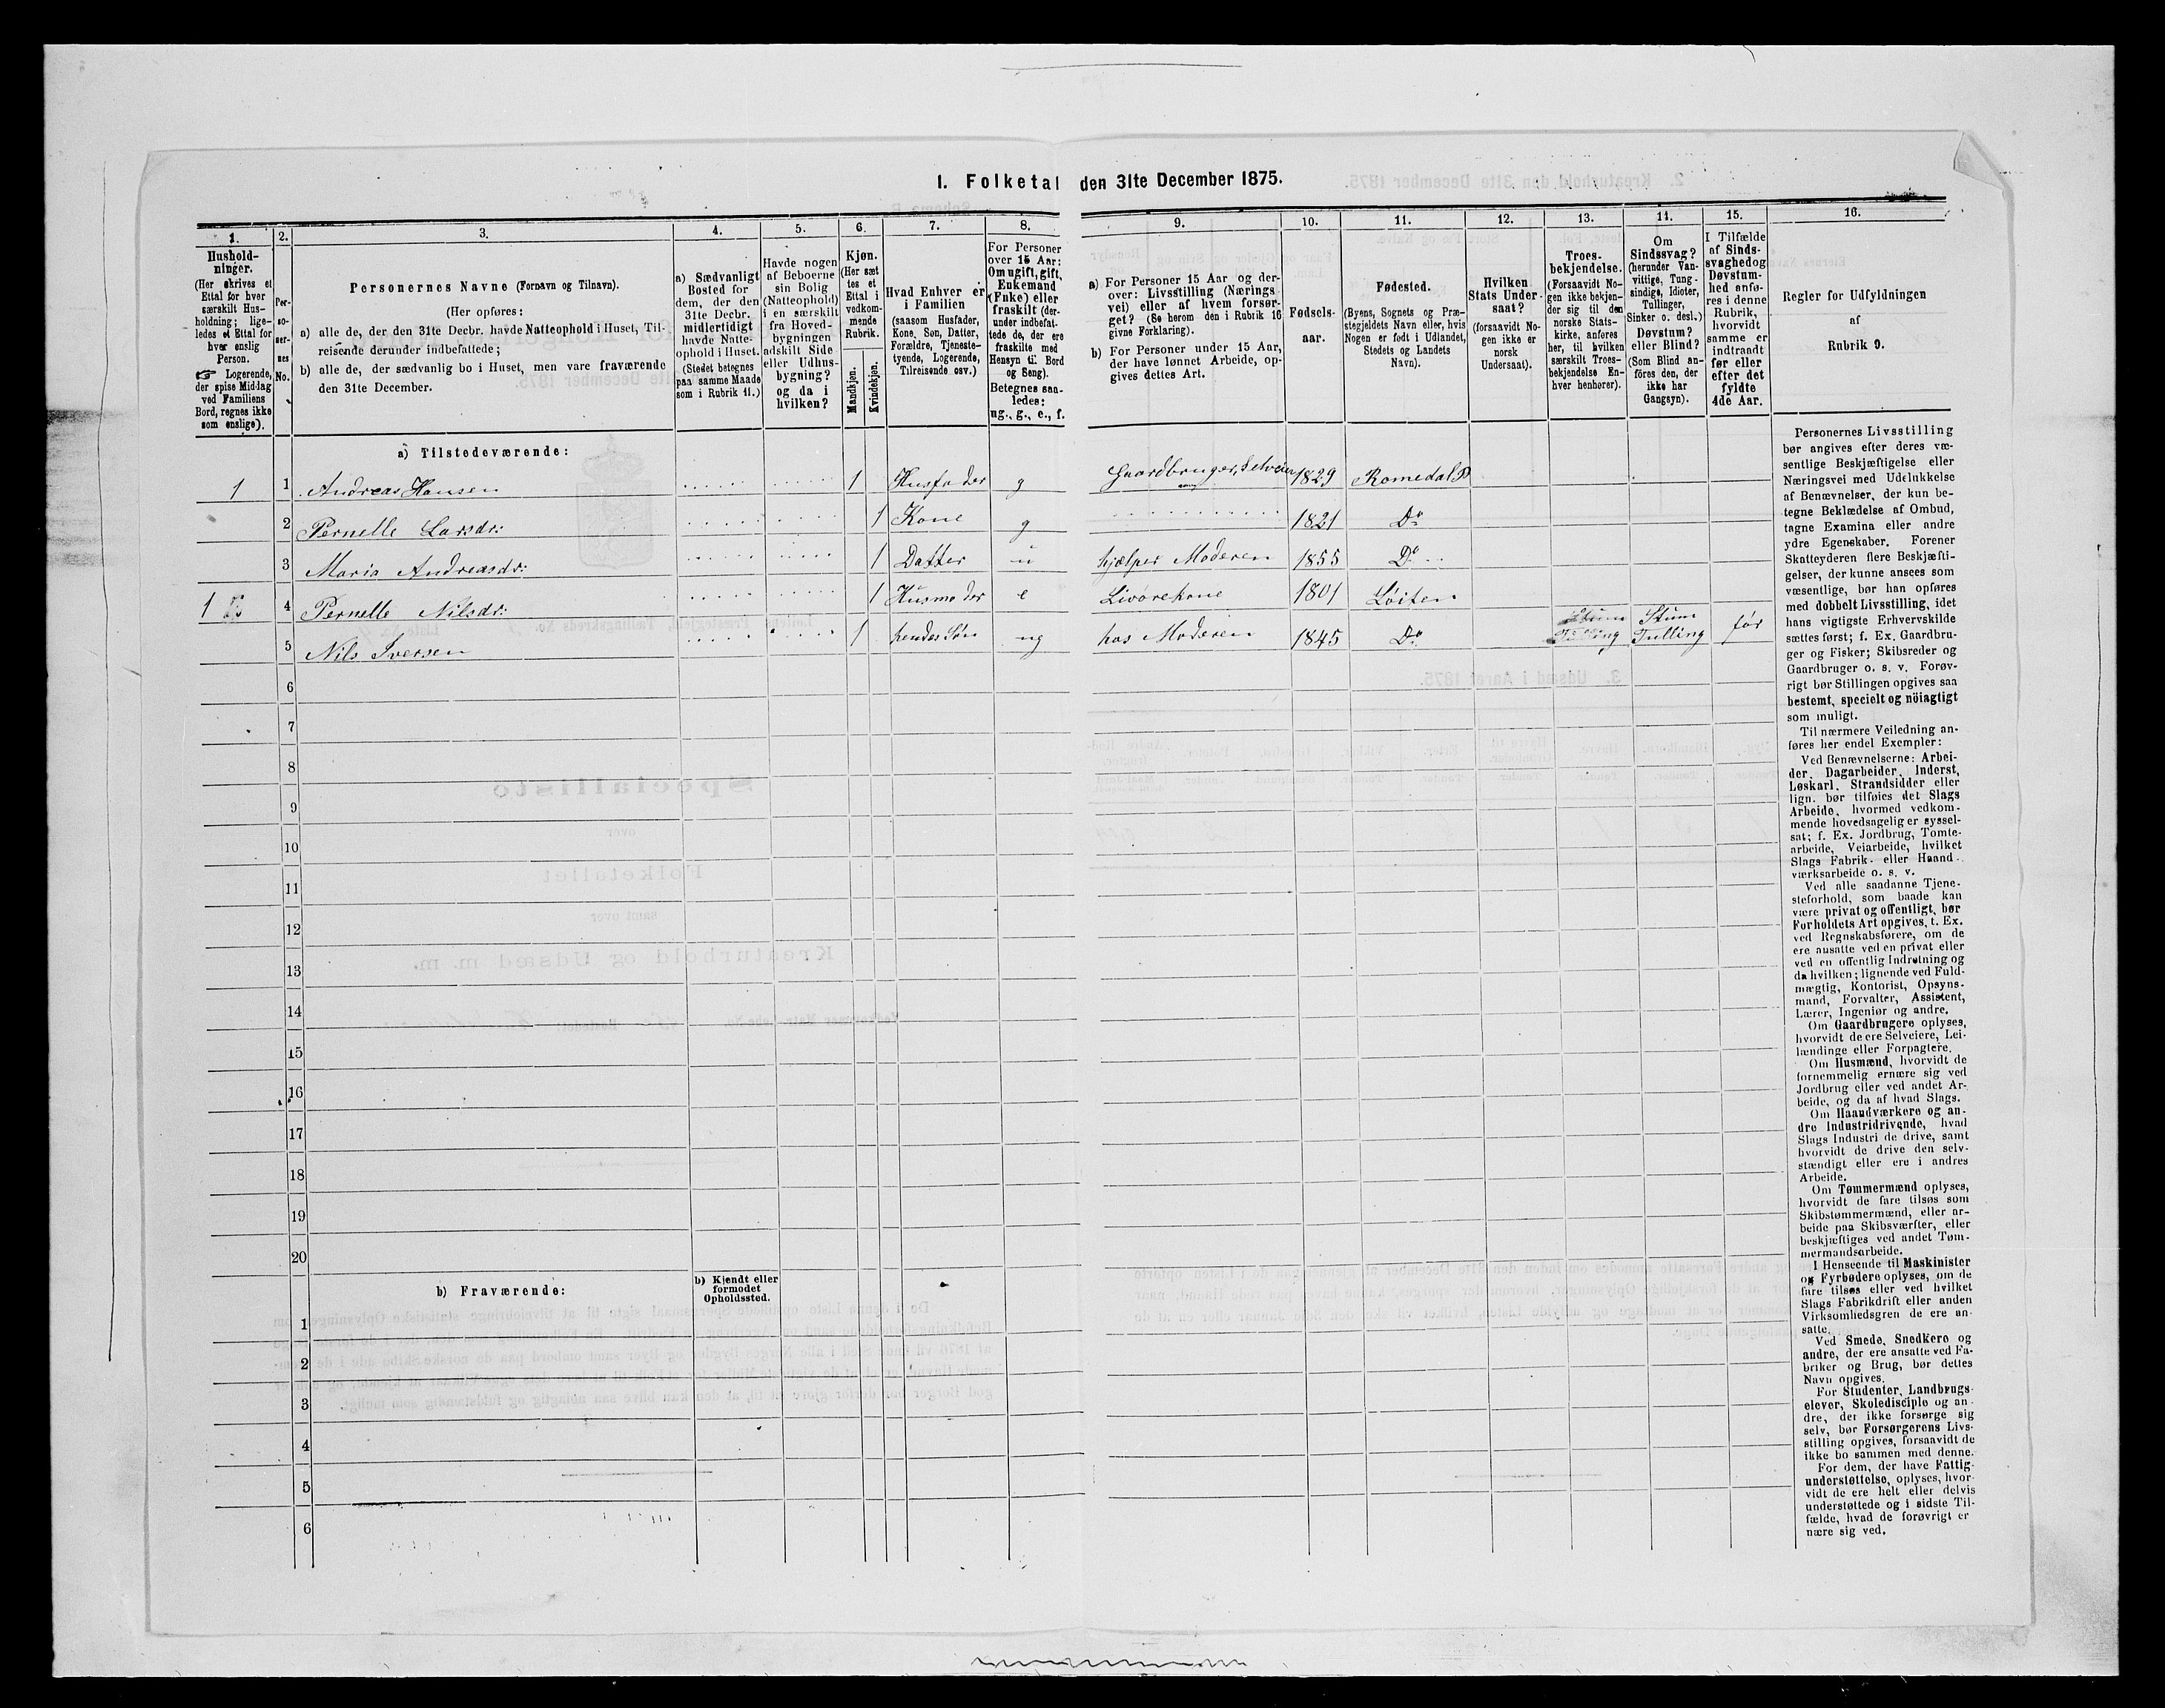 1. Folketal den 31te December 1875.
1.
Hushold-
ninger.
(Her skrives et
Ettal for hver
særskilt Hus-
holdning; lige-
ledes et Ettal for
hver enslig
Person.
☞ Logerende,
der spise Middag
ved Familiens
Bord, regnes ikke
som enslige).
2.
Per-
so-
ner-
nes
No.
3.
Personernes Navne (Fornavn og Tilnavn).
(Her opføres:
a) alle de, der den 31te Decbr. havde Natteophold i Huset, Til-
reisende derunder indbefattede;
b) alle de, der sædvanlig bo i Huset, men vare fraværende
den 31te December.
4.
a) Sædvanligt
Bosted for
dem, der den
31te Decbr.
midlertidigt
havde Natte-
ophold i Huset.
(Stedet betegnes
paa samme Maade
som i Rubrik 11.)
5.
Havde nogen
af Beboerne
sin Bolig
(Natteophold)
i en særskilt
fra Hoved-
bygningen
adskilt Side
eller Udhus-
bygning?
og da i
hvilken?
6.
Kjøn.
(Her sæt
tes et
Ettal i
vedkom-
mende
Rubrik.
Mandkjøn.
Kvindekjøn.
7.
Hvad Enhver er
i Familien
(saasom Husfader,
Kone, Søn, Datter,
Forældre, Tjeneste-
tyende, Logerende,
Tilreisende osv.)
8.
For Personer
over 15 Aar:
Om ugift, gift,
Enkemand
(Enke) eller
fraskilt (der-
under indbefat-
tede de, der ere
fraskilte med
Hensyn til Bord
og Seng).
Betegnes saa-
ledes:
ug., g., e., f.
9.
a) For Personer 15 Aar og der-
over: Livsstilling (Nærings
vei) eller af hvem forsør-
get? (Se herom den i Rubrik 16
givne Forklaring).
b) For Personer under 15 Aar,
der have lønnet Arbeide, op-
gives dettes Art.
10.
Fødsels-
aar.
11.
Fødested.
(Byens, Sognets og Præ-
stegjeldets Navn eller, hvis
Nogen er født i Udlandet,
Stedets og Landets
Navn).
12.
Hvilken
Stats Under-
saat?
(forsaavidt No-
gen ikke er
norsk
Undersaat).
13.
Troes-
bekjendelse.
(Forsaavidt No-
gen ikke bekjen-
der sig til den
norske Stats-
kirke, anføres
her, til hvilken
særskilt Troes-
bekjendelse En-
hver henhører).
14.
Om
Sindssvag?
(herunder Van-
vittige, Tung-
sindige, Idioter,
Tullinger,
Sinker o. desl.)
Døvstum?
eller Blind?
(Som Blind an-
føres den, der
ikke har
Gangsyn).
15.
I Tilfælde
af Sinds-
svaghed og
Døvstum-
hed anfø-
res i denne
Rubrik,
hvorvidt
samme er
indtraadt
før eller
efter det
fyldte
4de Aar.
16.
Regler for Udfyldningen
af
Rubrik 9.
a) Tilstedeværende:
1 1 Andreas Hansen 1 Husfader g Gaardbruger, Selveier 1829 Romedal P
2 Pernelle Larsdr: 1 Kone g 1821 Do
3 Maria Andreasdr: 1 Datter u hjælper Moderen 1855 Do
1 4 Pernelle Nilsdr: 1 Husmoder e Livørekone 1801 Løiten
5 Nils Iversen 1 hendes Søn ug hos Moderen 1845 Do Stum Tulling Stum Tulling før
6
7
8
9
10
11
12
13
14
15
16
17
18
19
20
b) Fraværende:
b) Kjendt eller
formodet
Opholdssted.
1
2
3
4
5
6
Personernes Livsstilling
bør angives efter deres væ-
sentlige Beskjæftigelse eller
Næringsvei med Udelukkelse
af Benævnelser, der kun be-
tegne Beklædelse af Ombud,
tagne Examina eller andre
ydre Egenskaber. Forener
Skatteyderen flere Beskjæfti-
gelser, der kunne ansees som
væsentlige, bør han opføres
med dobbelt Livsstilling, idet
hans vigtigste Erhvervskilde
sættes først; f. Ex. Gaardbru-
ger og Fisker; Skibsreder og
Gaardbruger o. s. v. Forøv-
rigt bør Stillingen opgives saa
bestemt, specielt og nöiagtigt
som muligt.
Til nærmere Veiledning an-
føres her endel Exempler:
Ved Benævnelserne: Arbei-
der, Dagarbeider, Inderst,
Løskarl, Strandsidder eller
lign. bør tilføies det Slags
Arbeide, hvormed vedkom-
mende hovedsagelig er syssel-
sat; f. Ex. Jordbrug, Tomte-
arbeide, Veiarbeide, hvilket
Slags Fabrik- eller Haand-
værksarbeide o. s. v.
Ved alle saadanne Tjene-
steforhold, som baade kan
være privat og offentligt, bør
Forholdets Art opgives, t. Ex.
ved Regnskabsførere, om de
ere ansatte ved en privat eller
ved en offentlig Indretning og
da hvilken; lignende ved Fuld-
mægtig, Kontorist, Opsyns-
mand, Forvalter, Assistent,
Lærer, Ingeniør og andre.
Om Gaardbrugere oplyses,
hvorvidt de ere Selveiere, Lei-
lændinge eller Forpagtere.
Om Husmænd, hvorvidt de
fornemmelig ernære sig ved
Jordbrug eller ved andet Ar-
beide, og da af hvad Slags.
Om Haandværkere og an-
dre Industridrivende, hvad
Slags Industri de drive, samt
hvorvidt de drive den selv-
stændigt eller ere i andres
Arbeide.
Om Tømmermænd oplyses,
hvorvidt de fare tilsøs som
Skibstømmermænd, eller ar-
beide paa Skibsværfter, eller
beskjæftiges ved andet Tøm-
mermandsarbeide.
I Henseende til Maskinister
og Fyrbødere oplyses, om de
fare tilsøs eller ved hvilket
Slags Fabrikdrift eller anden
Virksomhedsgren de ere an-
satte.
Ved Smede, Snedkere og
andre, der ere ansatte ved Fa-
briker og Brug, bør dettes
Navn opgives.
For Studenter, Landbrugs-
elever, Skoledisciple og an-
dre, der ikke forsørge sig
selv, bør Forsørgerens Livs-
stilling opgives, forsaavidt de
ikke bo sammen med denne.
For dem, der have Fattig-
understøttelse, oplyses, hvor-
vidt de ere helt eller delvis
understøttede og i sidste Til-
fælde, hvad de forøvrigt er
nære sig ved.